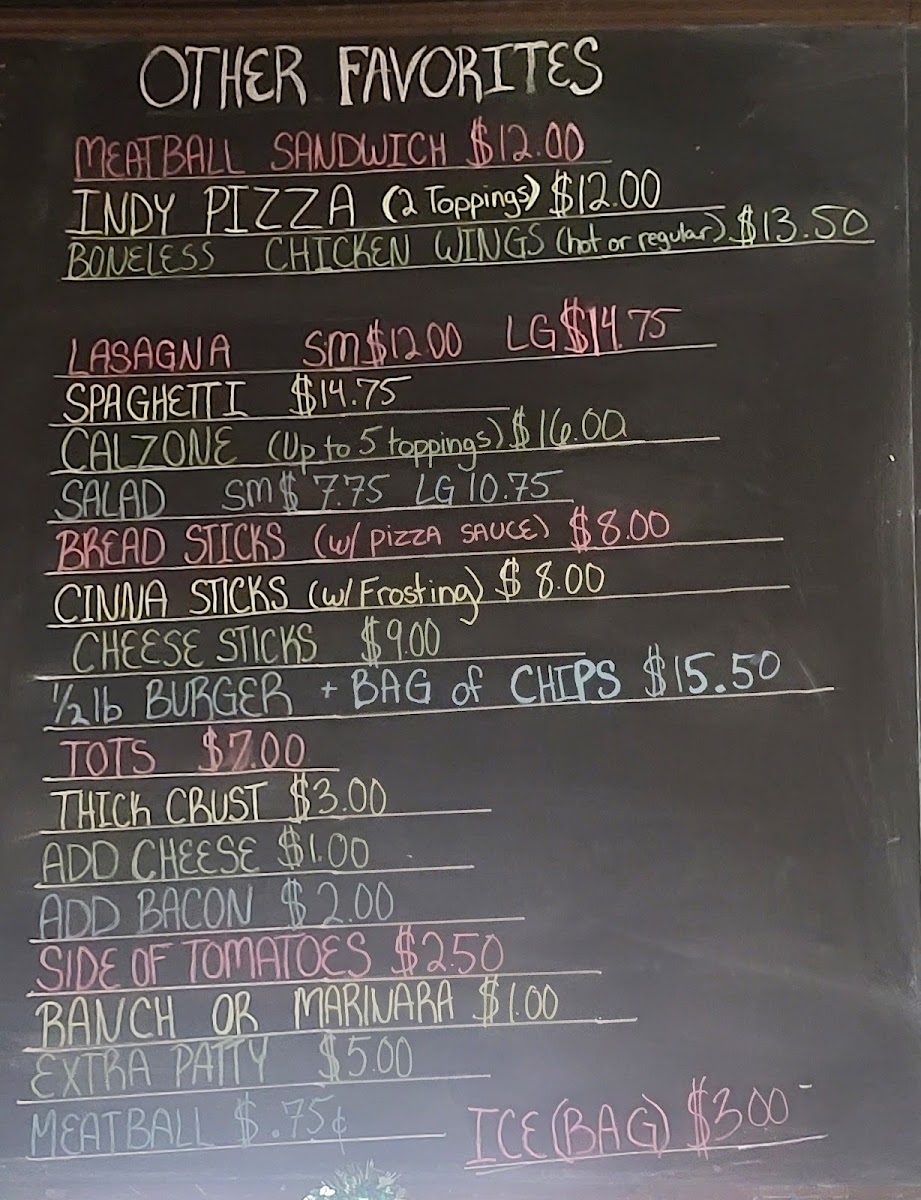 OTHER FAVORITES
MEATBALL SANDWICH $12.00
INDY PIZZA (2 Toppings) $12.00
BONELESS CHICKEN WINGS (hot or regular) $13.50
LASAGNA SM $12.00 LG $14.75
SPAGHETTI $14.75
CALZONE (Up to 5 toppings) $16.00
SALAD SM $7.75 LG 10.75
BREAD STICKS (w/ PIZZA SAUCE) $8.00
CINNA STICKS (w/ Frosting) $8.00
CHEESE STICKS $9.00
1/2 lb BURGER + BAG of CHIPS $15.50
TOTS $7.00
THICK CRUST $3.00
ADD CHEESE $1.00
ADD BACON $2.00
SIDE OF TOMATOES $2.50
RANCH OR MARINARA $1.00
EXTRA PATTY $5.00
MEATBALL $.75¢
ICE (BAG) $3.00